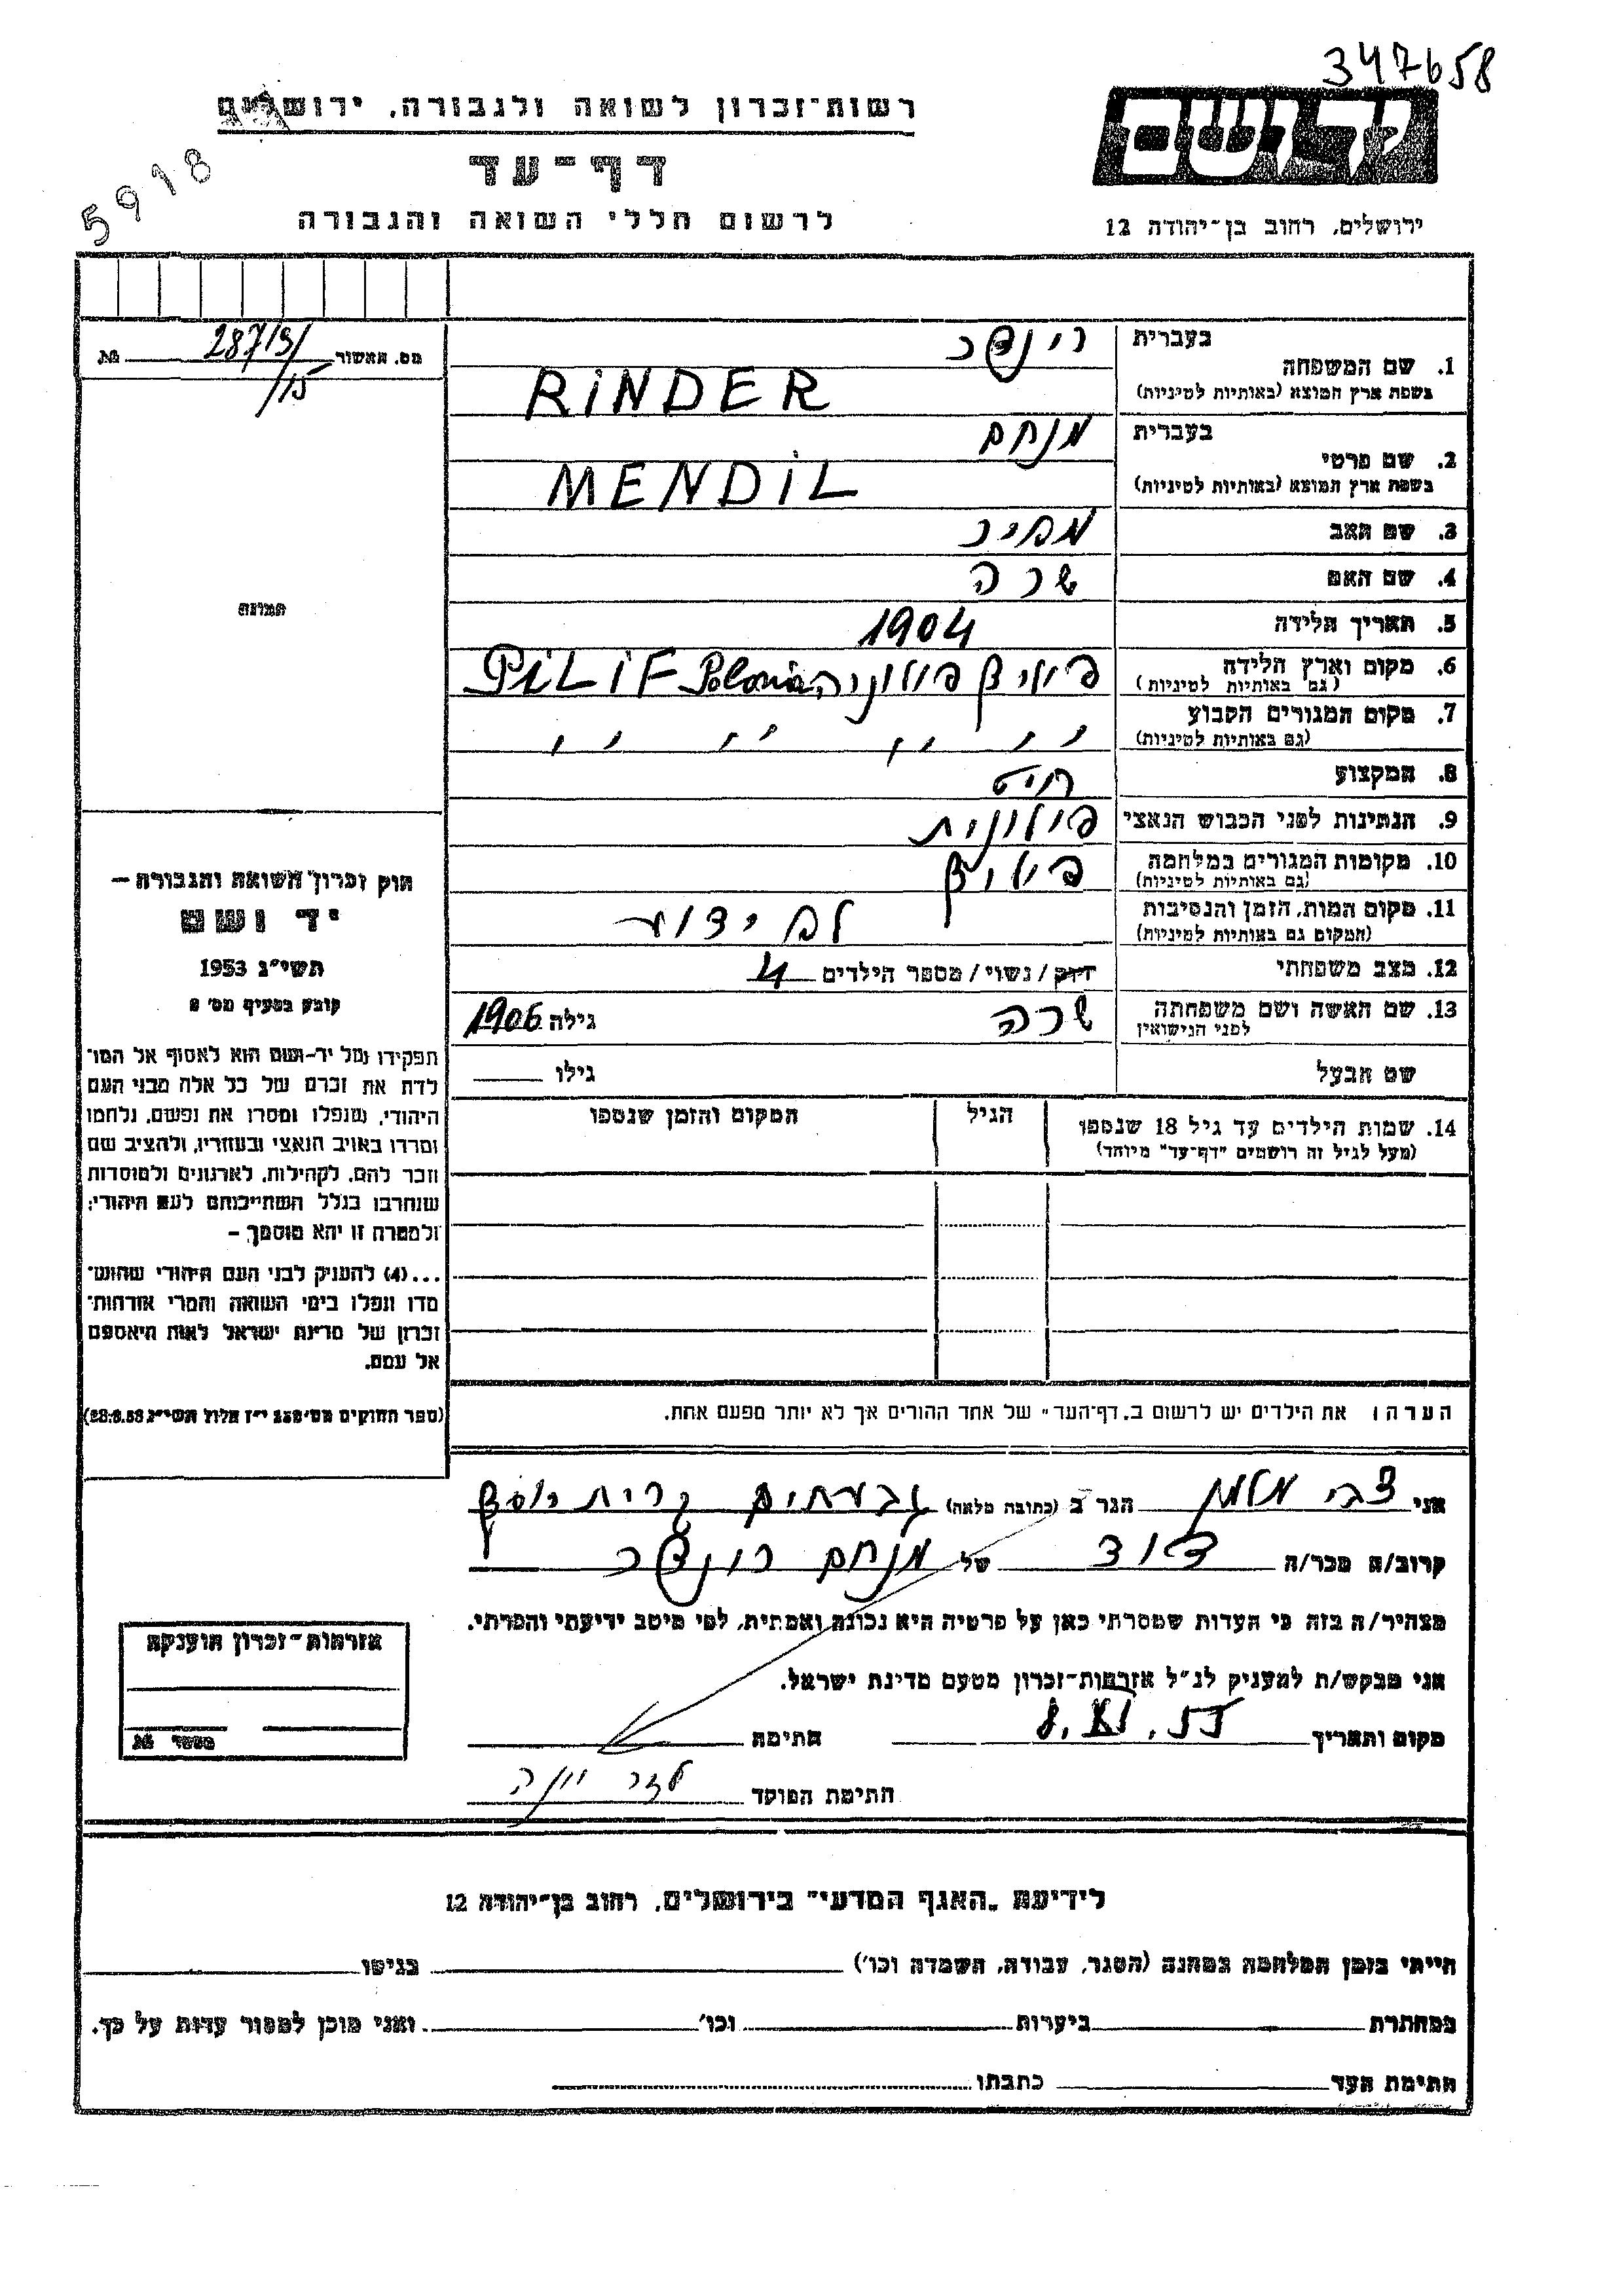 347658
רשות־זכרון לשואה ולגבורה, ירושלים
דף־עד
לרשום חללי השואה והגבורה
5918
יד ושם
ירושלים, רחוב בן־יהודה 12
מס. האשור 28719/15 №
1. שם המשפחה בעברית רינדר
בשפת ארץ המוצא (באותיות לטיניות) RINDER
2. שם פרטי בעברית מנחם
בשפת ארץ המוצא (באותיות לטיניות) MENDIL
3. שם האב מאיר
4. שם האם שרה
5. תאריך הלידה 1904
6. מקום וארץ הלידה (גם באותיות לטיניות) פוליף פולוניה Polonia PILIF
7. מקום המגורים הקבוע (גם באותיות לטיניות) " " " "
8. המקצוע חייט
9. הנתינות לפני הכבוש הנאצי פולונית
10. מקומות המגורים במלחמה (גם באותיות לטיניות) פוליף
11. מקום המות, הזמן והנסיבות (המקום גם באותיות לטיניות) לא ידוע
12. מצב משפחתי רווק / נשוי / מספר הילדים 4
13. שם האשה ושם משפחתה לפני הנישואין שרה גילה 1906
שם הבעל גילו
14. שמות הילדים עד גיל 18 שנספו
(מעל לגיל זה רושמים "דף־עד" מיוחד)
הגיל
המקום והזמן שנספו
הערה: את הילדים יש לרשום ב„דף־העד" של אחד ההורים אך לא יותר מפעם אחת.
תמונה
חוק זכרון השואה והגבורה –
יד ושם
תשי"ג 1953
קובע בסעיף מס' 2
תפקידו של יד-ושם הוא לאסוף אל המו־
לדת את זכרם של כל אלה מבני העם
היהודי, שנפלו ומסרו את נפשם, נלחמו
ומרדו באויב הנאצי ובעוזריו, ולהציב שם
וזכר להם, לקהילות, לארגונים ולמוסדות
שנחרבו בגלל השתייכותם לעם היהודי;
ולמטרה זו יהא מוסמך –
...(4) להעניק לבני העם היהודי שהוש־
מדו ונפלו בימי השואה והמרי אזרחות־
זכרון של מדינת ישראל לאות היאספם
אל עמם.
(ספר החוקים מס' 132 י"ז אלול תשי"ג 28.8.53)
אני צבי הגר ב (כתובה מלאה) גבעתיים קרית יוסף
קרוב/ה מכר/ה דוד של מנחם רינדר
מצהיר/ה בזה כי העדות שמסרתי כאן על פרטיה היא נכונה ואמתית, לפי מיטב ידיעתי והכרתי.
אני מבקש/ת להעניק לנ"ל אזרחות-זכרון מטעם מדינת ישראל.
מקום ותאריך 8.XI.55 חתימה
חתימת הפוקד
אזרחות־זכרון הוענקה
מספר №
לידיעת „האגף המדעי" בירושלים, רחוב בן־יהודה 12
הייתי בזמן המלחמה במחנה (הסגר, עבודה, השמדה וכו') בגיטו
במחתרת ביערות וכו' ואני מוכן למסור עדות על כך.
חתימת העד כתבתו